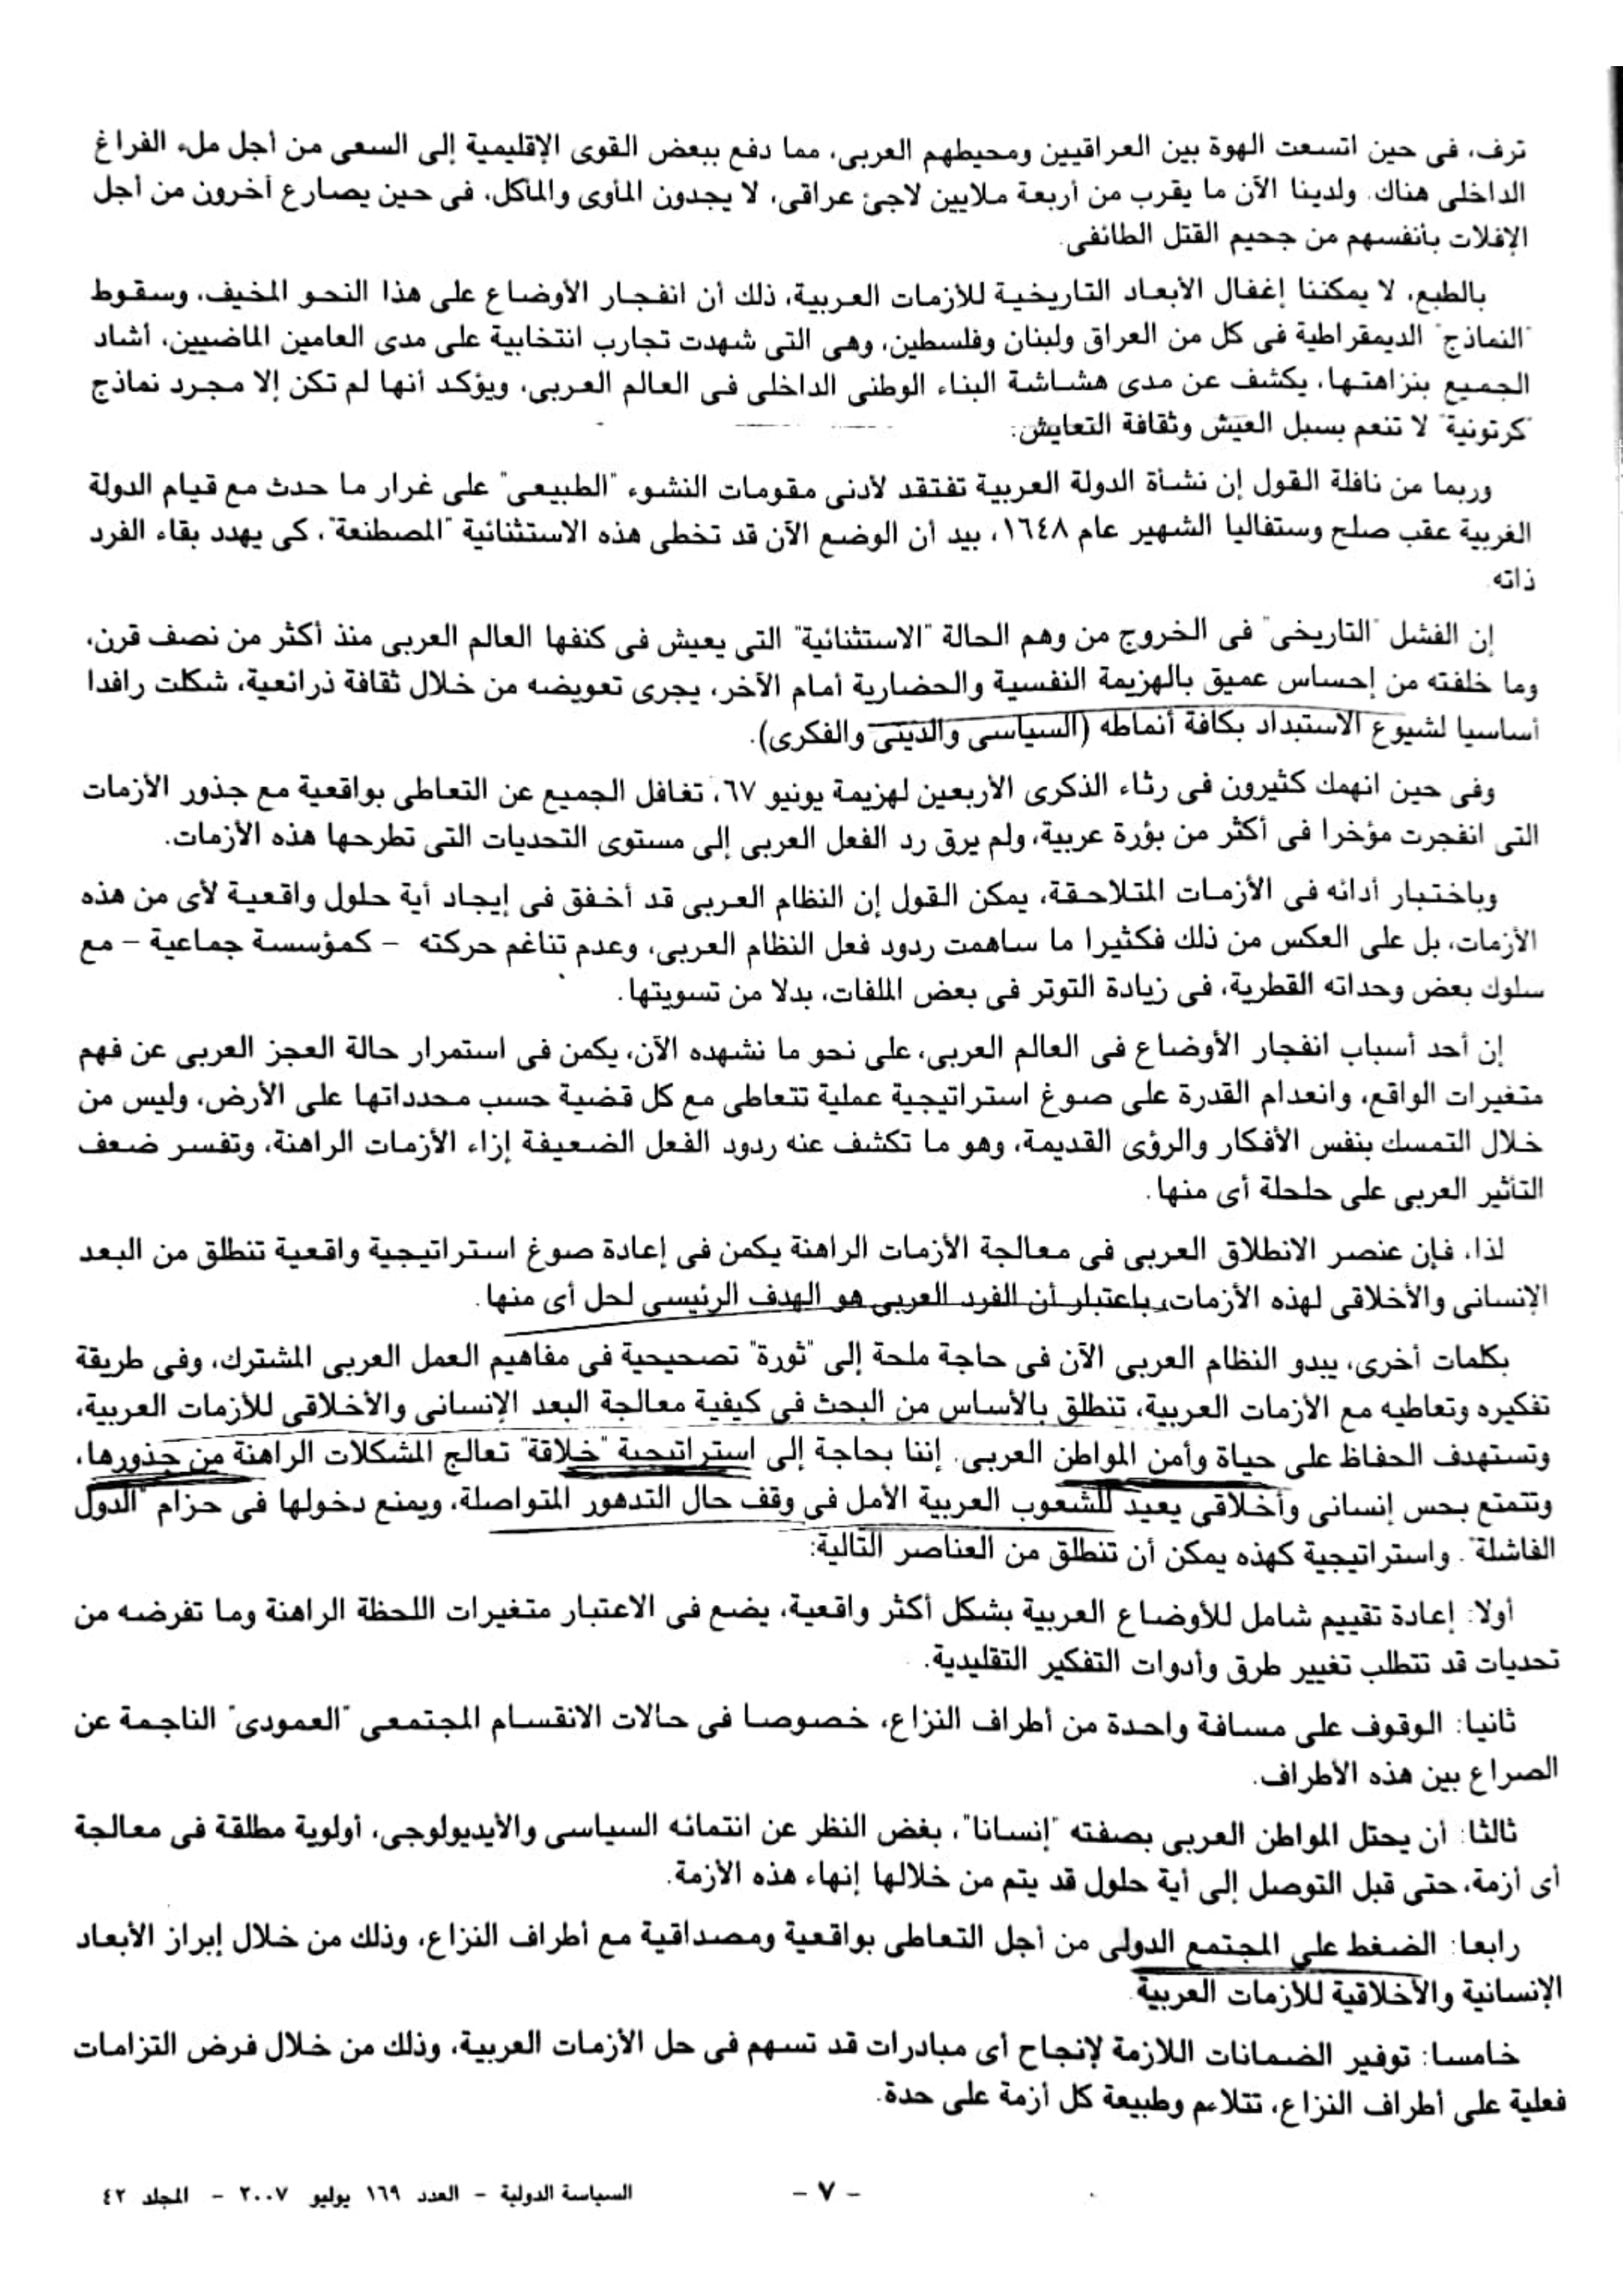 ترف، فى حين اتسعت الهوة بين العراقيين ومحيطهم العربى، مما دفع ببعض القوى الإقليمية إلى السعى من أجل ملء الفراغ
الداخلى هناك. ولدينا الآن ما يقرب من أربعة ملايين لاجئ عراقى، لا يجدون المأوى والمأكل، فى حين يصارع أخرون من أجل
الإفلات بأنفسهم من جحيم القتل الطائفى.
بالطبع، لا يمكننا إغفال الأبعاد التاريخية للأزمات العربية، ذلك أن انفجار الأوضاع على هذا النحو المخيف، وسقوط
"النماذج" الديمقراطية فى كل من العراق ولبنان وفلسطين، وهى التى شهدت تجارب انتخابية على مدى العامين الماضيين، أشاد
الجميع بنزاهتها، يكشف عن مدى هشاشة البناء الوطنى الداخلى فى العالم العربى، ويؤكد أنها لم تكن إلا مجرد نماذج
"كرتونية" لا تنعم بسبل العيش وثقافة التعايش.
وربما من نافلة القول إن نشأة الدولة العربية تفتقد لأدنى مقومات النشوء "الطبيعى" على غرار ما حدث مع قيام الدولة
الغربية عقب صلح وستفاليا الشهير عام ١٦٤٨، بيد أن الوضع الآن قد تخطى هذه الاستثنائية "المصطنعة"، كى يهدد بقاء الفرد
ذاته.
إن الفشل "التاريخى" فى الخروج من وهم الحالة "الاستثنائية" التى يعيش فى كنفها العالم العربى منذ أكثر من نصف قرن،
وما خلفته من إحساس عميق بالهزيمة النفسية والحضارية أمام الآخر، يجرى تعويضه من خلال ثقافة ذرائعية، شكلت رافدا
أساسيا لشيوع الاستبداد بكافة أنماطه (السياسى والدينى والفكرى).
وفى حين انهمك كثيرون فى رثاء الذكرى الأربعين لهزيمة يونيو ٦٧، تغافل الجميع عن التعاطى بواقعية مع جذور الأزمات
التى انفجرت مؤخرا فى أكثر من بؤرة عربية، ولم يرق رد الفعل العربى إلى مستوى التحديات التى تطرحها هذه الأزمات.
وباختبار أدائه فى الأزمات المتلاحقة، يمكن القول إن النظام العربى قد أخفق فى إيجاد أية حلول واقعية لأى من هذه
الأزمات، بل على العكس من ذلك فكثيرا ما ساهمت ردود فعل النظام العربى، وعدم تناغم حركته – كمؤسسة جماعية – مع
سلوك بعض وحداته القطرية، فى زيادة التوتر فى بعض الملفات، بدلا من تسويتها.
إن أحد أسباب انفجار الأوضاع فى العالم العربى، على نحو ما نشهده الآن، يكمن فى استمرار حالة العجز العربى عن فهم
متغيرات الواقع، وانعدام القدرة على صوغ استراتيجية عملية تتعاطى مع كل قضية حسب محدداتها على الأرض، وليس من
خلال التمسك بنفس الأفكار والرؤى القديمة، وهو ما تكشف عنه ردود الفعل الضعيفة إزاء الأزمات الراهنة، وتفسر ضعف
التأثير العربى على حلحلة أى منها.
لذا، فإن عنصر الانطلاق العربى فى معالجة الأزمات الراهنة يكمن فى إعادة صوغ استراتيجية واقعية تنطلق من البعد
الإنسانى والأخلاقى لهذه الأزمات، باعتبار أن الفرد العربى هو الهدف الرئيسى لحل أى منها.
بكلمات أخرى، يبدو النظام العربى الآن فى حاجة ملحة إلى "ثورة" تصحيحية فى مفاهيم العمل العربى المشترك، وفى طريقة
تفكيره وتعاطيه مع الأزمات العربية، تنطلق بالأساس من البحث فى كيفية معالجة البعد الإنسانى والأخلاقى للأزمات العربية،
وتستهدف الحفاظ على حياة وأمن المواطن العربى. إننا بحاجة إلى استراتيجية "خلاقة" تعالج المشكلات الراهنة من جذورها،
وتتمتع بحس إنسانى وأخلاقى يعيد للشعوب العربية الأمل فى وقف حال التدهور المتواصلة، ويمنع دخولها فى حزام "الدول
الفاشلة". واستراتيجية كهذه يمكن أن تنطلق من العناصر التالية:
أولا: إعادة تقييم شامل للأوضاع العربية بشكل أكثر واقعية، يضع فى الاعتبار متغيرات اللحظة الراهنة وما تفرضه من
تحديات قد تتطلب تغيير طرق وأدوات التفكير التقليدية.
ثانيا: الوقوف على مسافة واحدة من أطراف النزاع، خصوصا فى حالات الانقسام المجتمعى "العمودى" الناجمة عن
الصراع بين هذه الأطراف.
ثالثا: أن يحتل المواطن العربى بصفته "إنسانا"، بغض النظر عن انتمائه السياسى والأيديولوجى، أولوية مطلقة فى معالجة
أى أزمة، حتى قبل التوصل إلى أية حلول قد يتم من خلالها إنهاء هذه الأزمة.
رابعا: الضغط على المجتمع الدولى من أجل التعاطى بواقعية ومصداقية مع أطراف النزاع، وذلك من خلال إبراز الأبعاد
الإنسانية والأخلاقية للأزمات العربية.
خامسا: توفير الضمانات اللازمة لإنجاح أى مبادرات قد تسهم فى حل الأزمات العربية، وذلك من خلال فرض التزامات
فعلية على أطراف النزاع، تتلاءم وطبيعة كل أزمة على حدة.
– ٧ – السياسة الدولية – العدد ١٦٩ يوليو ٢٠٠٧ – المجلد ٤٢